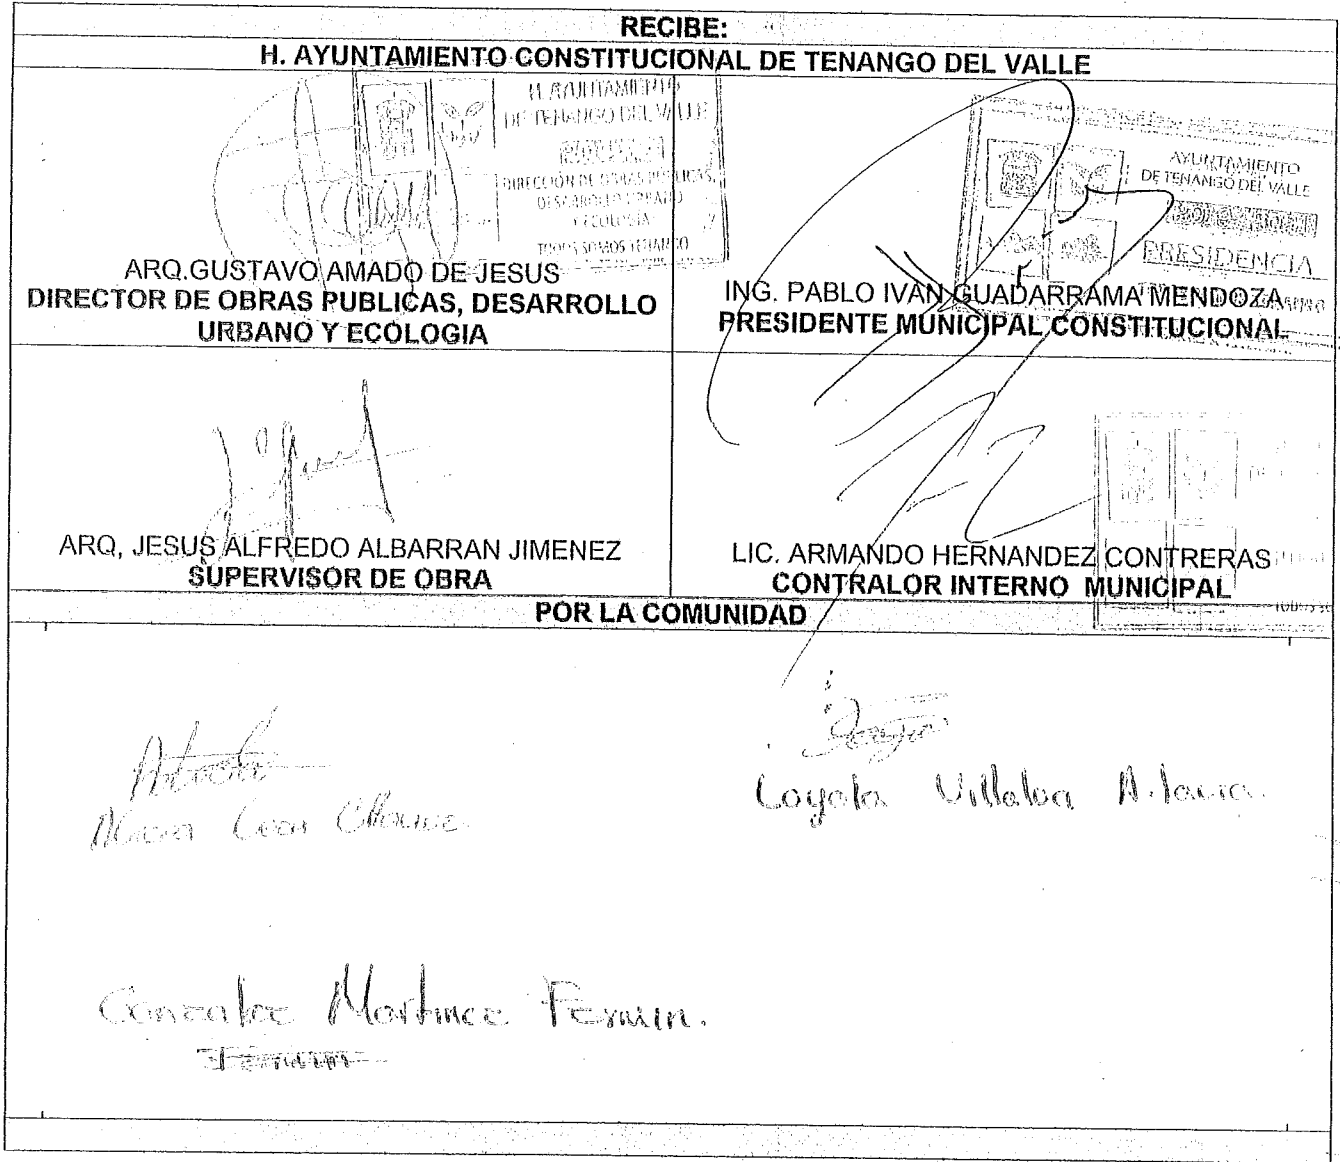 RECIBE:
H. AYUNTAMIENTO CONSTITUCIONAL DE TENANGO DEL VALLE
H. AYUNTAMIENTO
DE TENANGO DEL VALLE
DIRECCIÓN DE OBRAS PÚBLICAS,
DESARROLLO URBANO
Y ECOLOGÍA
TODOS SOMOS TENANGO
ARQ.GUSTAVO AMADO DE JESUS
DIRECTOR DE OBRAS PUBLICAS, DESARROLLO
URBANO Y ECOLOGIA
AYUNTAMIENTO
DE TENANGO DEL VALLE
PRESIDENCIA
ING. PABLO IVÁN GUADARRAMA MENDOZA
PRESIDENTE MUNICIPAL CONSTITUCIONAL
ARQ, JESUS ALFREDO ALBARRAN JIMENEZ
SUPERVISOR DE OBRA
LIC. ARMANDO HERNANDEZ CONTRERAS
CONTRALOR INTERNO MUNICIPAL
POR LA COMUNIDAD
Loyola
Gonzalez Martinez Fermin.
Fermin